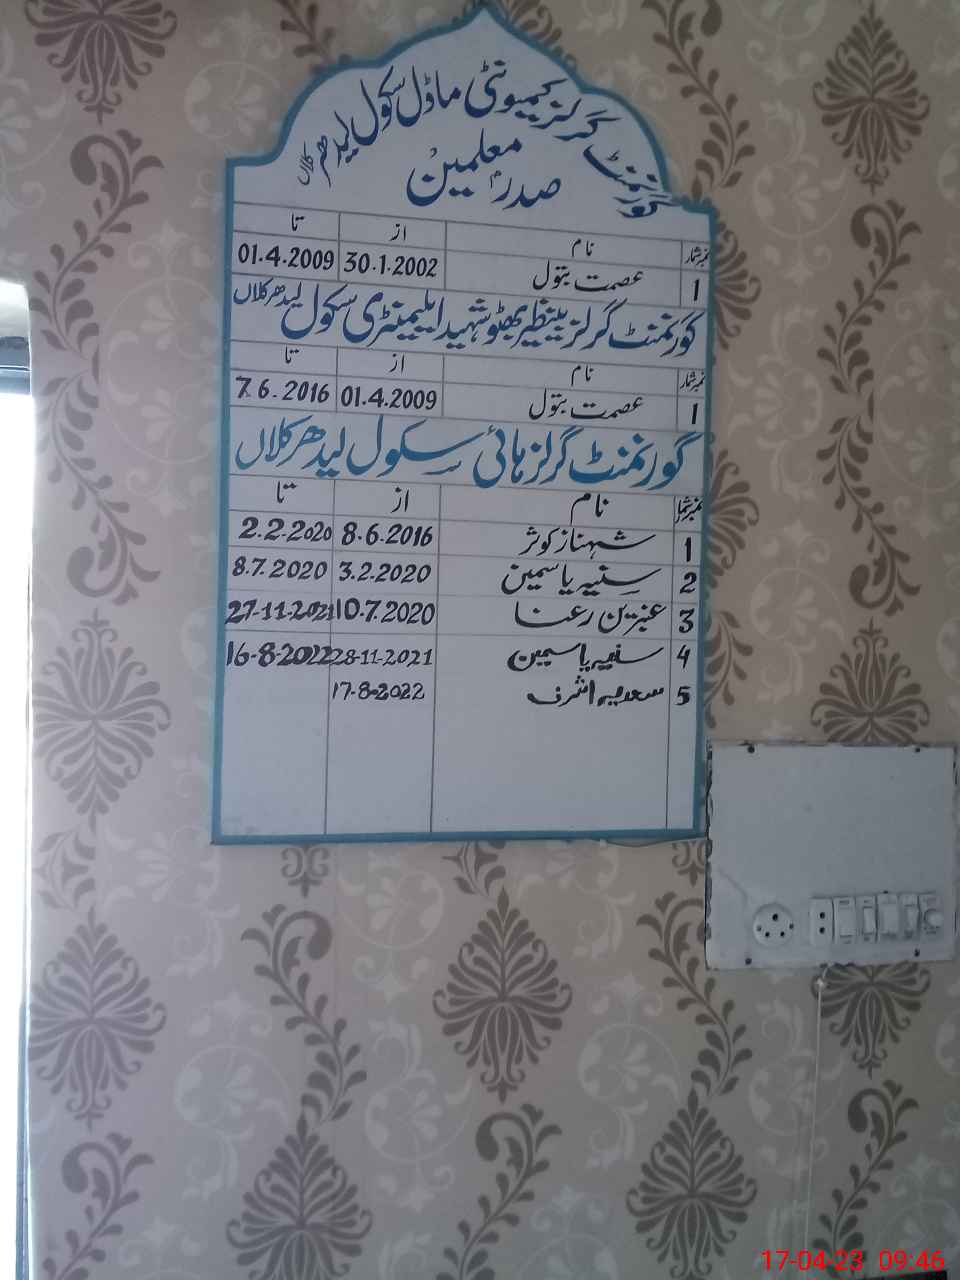 گورنمنٹ گرلز کمیونٹی ماڈل سکول لیدھر کلاں
صدر معلمین
نمبر شمار نام از تا
1 عصمت بتول 30.1.2002 01.4.2009
گورنمنٹ گرلز بینظیر بھٹو شہید ایلیمنٹری سکول لیدھر کلاں
نمبر شمار نام از تا
1 عصمت بتول 01.4.2009 7.6.2016
گورنمنٹ گرلز ہائی سکول لیدھر کلاں
نمبر شمار نام از تا
1 شہناز کوثر 8.6.2016 2.2.2020
2 سنیہ یاسمین 3.2.2020 8.7.2020
3 عنبرین رعنا 10.7.2020 27-11-2021
4 سنیہ یاسمین 28-11-2021 16-8-2022
5 سعدیہ اشرف 17-8-2022
17-04-23 09:46